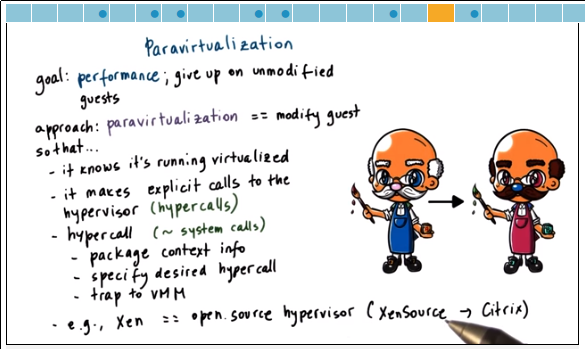 Paravirtualization
goal: performance; give up on unmodified
guests
approach: paravirtualization == modify guest
so that...
- it knows it's running virtualized
- it makes explicit calls to the
hypervisor (hypercalls)
- hypercall (~ system calls)
- package context info
- specify desired hypercall
- trap to VMM
- e.g., Xen == open.source hypervisor (XenSource → Citrix)